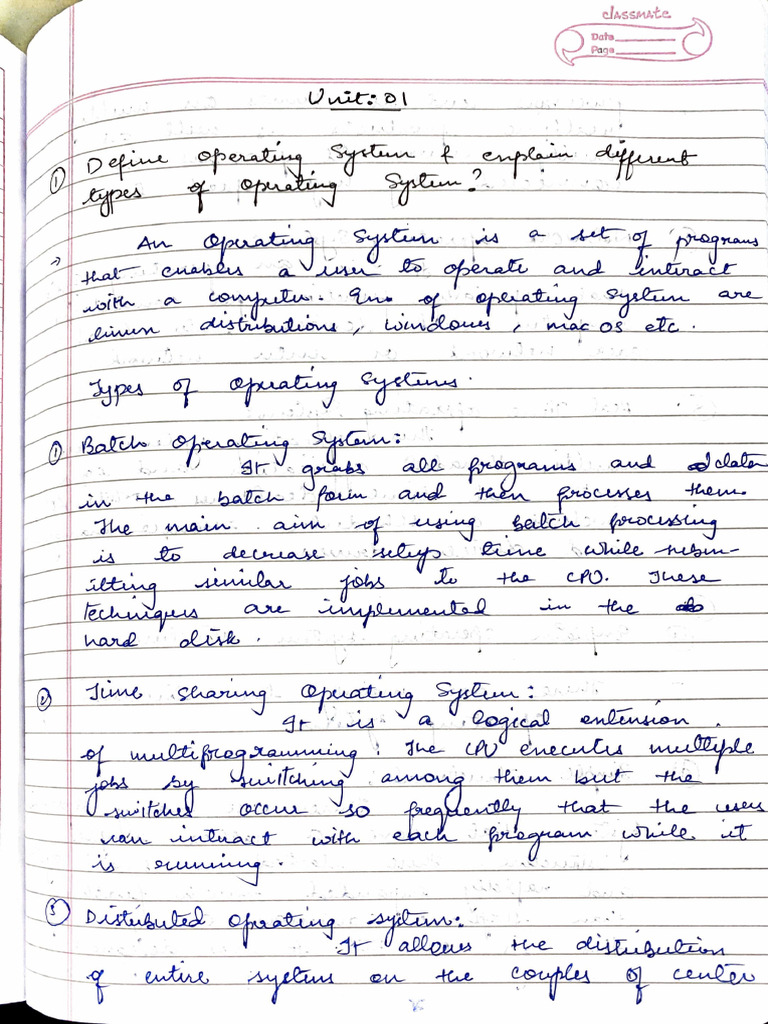 classmate
Date
Page
Unit: 01
① Define Operating System & explain different
types of Operating System?
→ An Operating System is a set of programs
that enables a user to operate and interact
with a computer. Ex. of operating system are
linux distributions, windows, mac OS etc.
Types of Operating Systems.
① Batch Operating System:
It grabs all programs and data
in the batch form and then processes them.
The main aim of using batch processing
is to decrease setups time while subm-
itting similar jobs to the CPU. These
techniques are implemented in the
hard disk.
② Time Sharing Operating System:
It is a logical extension
of multiprogramming. The CPU executes multiple
jobs by switching among them but the
switches occur so frequently that the users
can intract with each program while it
is running.
③ Distributed Operating system:
It allows the distribution
of entire system on the couples of center